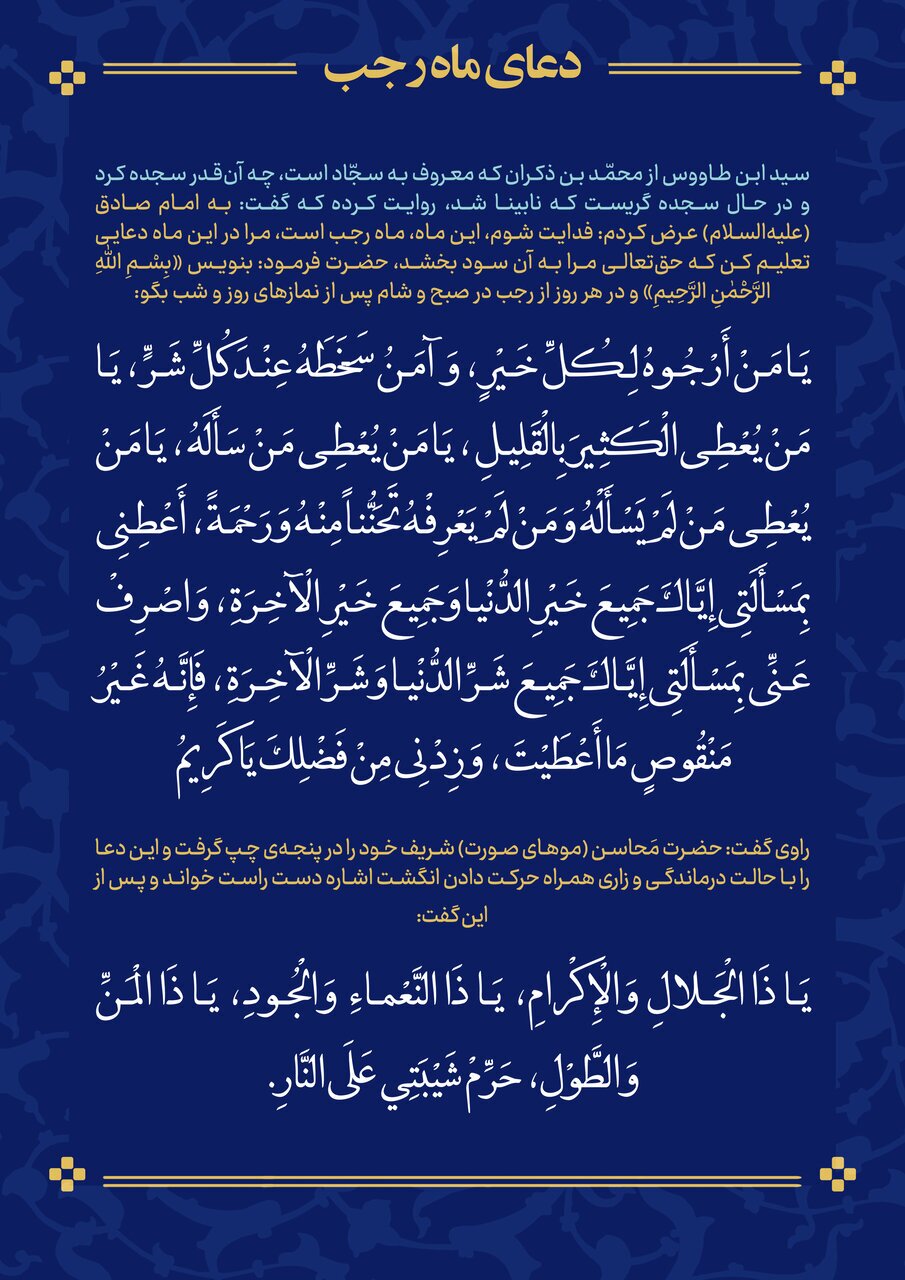 دعای ماه رجب
سید ابن طاووس از محمّد بن ذکران که معروف به سجّاد است، چه آن‌قدر سجده کرد
و در حال سجده گریست که نابینا شد، روایت کرده که گفت: به امام صادق
(علیه‌السلام) عرض کردم: فدایت شوم، این ماه، ماه رجب است، مرا در این ماه دعایی
تعلیم کن که حق‌تعالی مرا به آن سود بخشد، حضرت فرمود: بنویس «بِسْمِ اللّٰهِ
الرَّحْمٰنِ الرَّحِیمِ» و در هر روز از رجب در صبح و شام پس از نمازهای روز و شب بگو:
يَا مَنْ أَرْجُوهُ لِكُلِّ خَيْرٍ، وَ آمَنُ سَخَطَهُ عِنْدَ كُلِّ شَرٍّ، يَا
مَنْ يُعْطِى الْكَثِيرَ بِالْقَلِيلِ، يَا مَنْ يُعْطِى مَنْ سَأَلَهُ، يَا مَنْ
يُعْطِى مَنْ لَمْ يَسْأَلْهُ وَ مَنْ لَمْ يَعْرِفْهُ تَحَنُّناً مِنْهُ وَ رَحْمَةً، أَعْطِنِى
بِمَسْأَلَتِى إِيَّاكَ جَمِيعَ خَيْرِ الدُّنْيا وَ جَمِيعَ خَيْرِ الْآخِرَةِ، وَ اصْرِفْ
عَنِّى بِمَسْأَلَتِى إِيَّاكَ جَمِيعَ شَرِّ الدُّنْيا وَ شَرِّ الْآخِرَةِ، فَإِنَّهُ غَيْرُ
مَنْقُوصٍ مَا أَعْطَيْتَ، وَ زِدْنِى مِنْ فَضْلِكَ يَا كَرِيمُ
راوی گفت: حضرت مَحاسن (موهای صورت) شریف خود را در پنجه‌ی چپ گرفت و این دعا
را با حالت درماندگی و زاری همراه حرکت دادن انگشت اشاره دست راست خواند و پس از
این گفت:
يَا ذَا الْجَلالِ وَالْإِكْرامِ، يَا ذَا النَّعْماءِ وَالْجُودِ، يَا ذَا الْمَنِّ
وَالطَّوْلِ، حَرِّمْ شَيْبَتِي عَلَى النَّارِ.